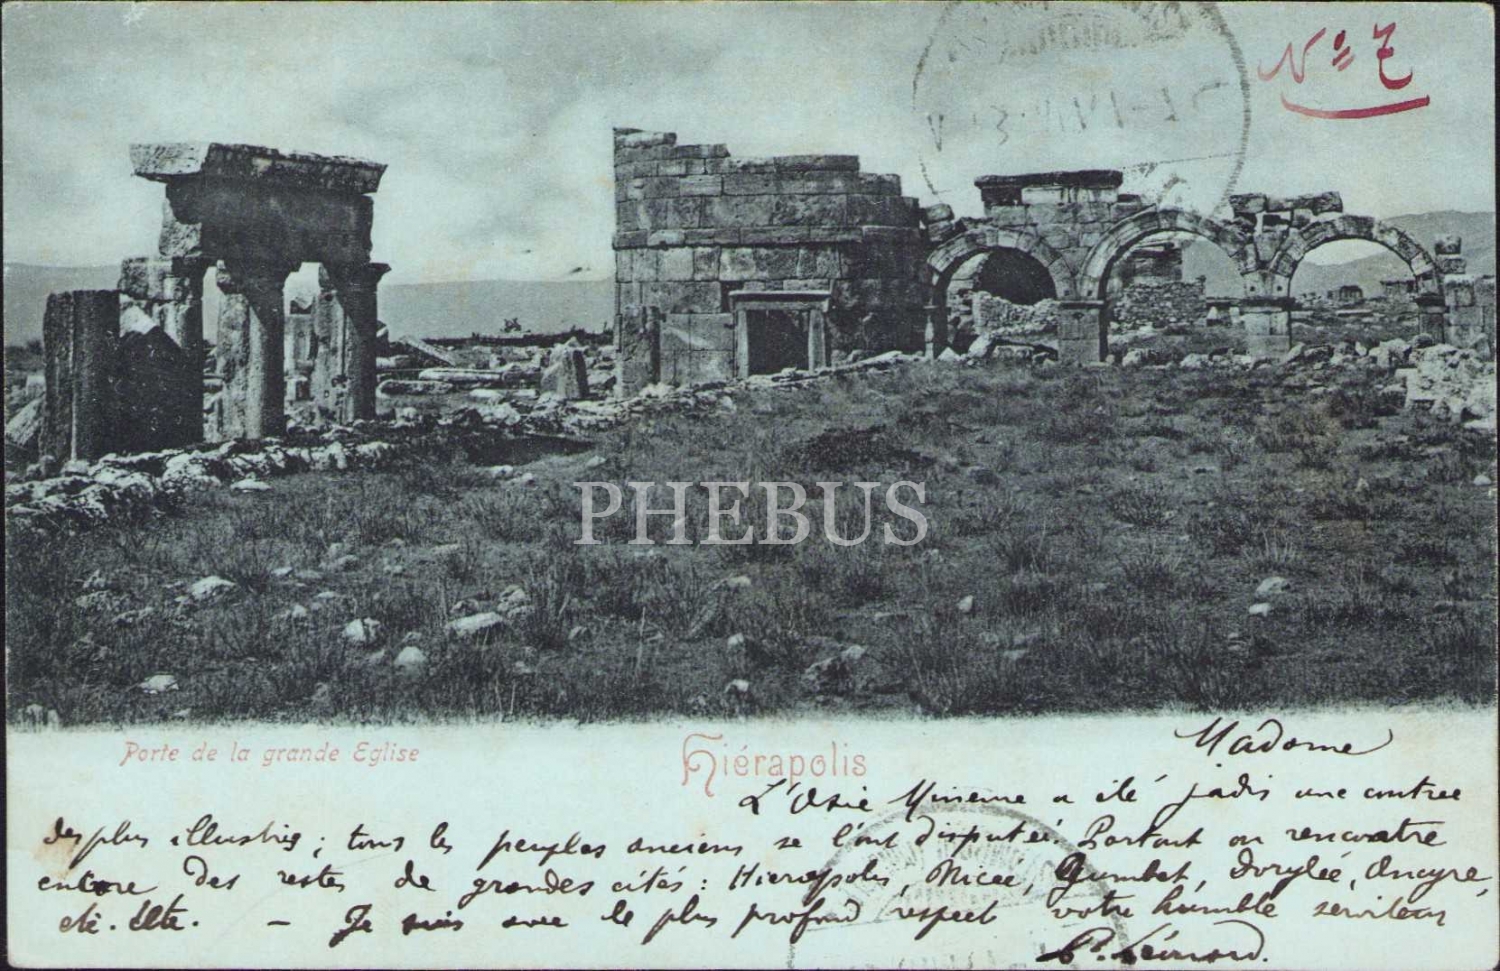 N° 7
PHEBUS
Porte de la grande Eglise
Hiérapolis
Madame
L'Asie Mineure a été jadis une contrée
des plus illustres; tous les peuples anciens se l'ont disputée. Partout on rencontre
encore des restes de grandes cités: Hierapolis, Nicée, Gumbet, Dorylée, Ancyre,
etc. etc. - Je suis avec le plus profond respect votre humble serviteur